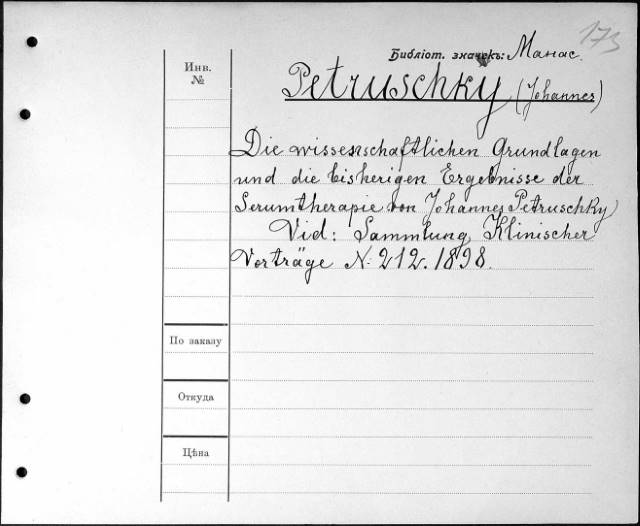 173
Библіот. значекъ: Манас.
Инв.
№
Petruschky (Johannes)
Die wissenschaftlichen Grundlagen
und die bisherigen Ergebnisse der
Serumtherapie von Johannes Petruschky
Vid: Sammlung Klinischer
Vorträge N: 212. 1898.
По заказу
Откуда
Цѣна